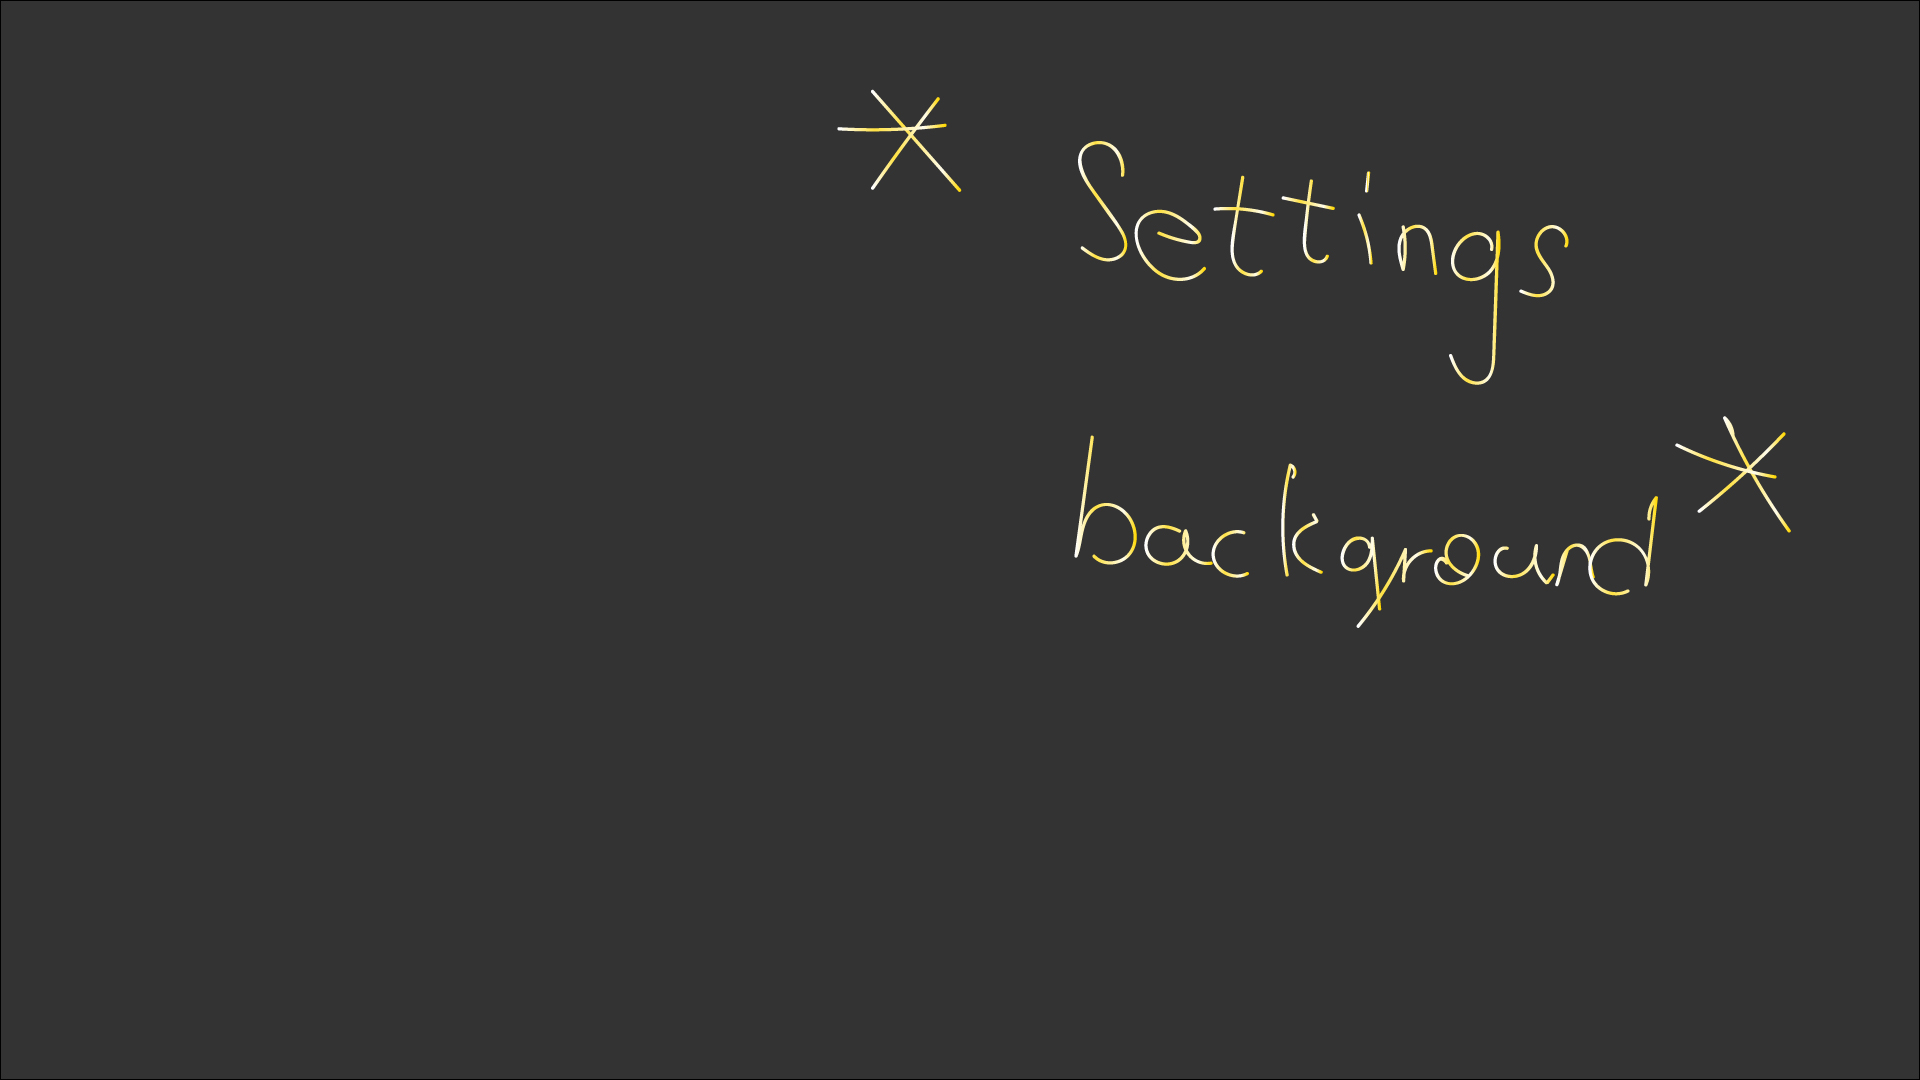 * Settings
background *